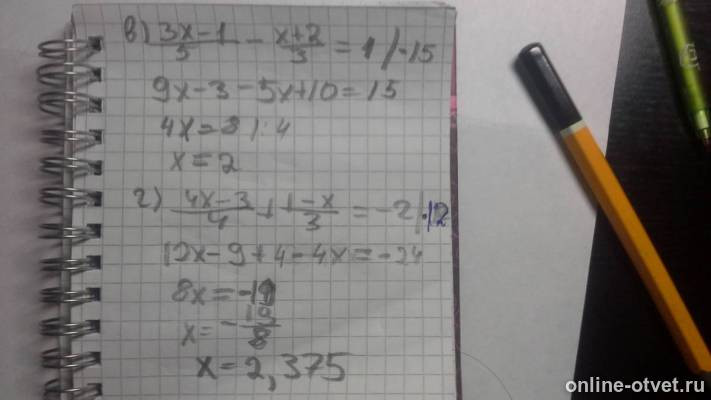 в) (3x-1)/5 - (x+2)/3 = 1 /·15
9x-3-5x+10=15
4x=8 /:4
x=2
г) (4x-3)/4 + (1-x)/3 = -2 /·12
12x-9+4-4x=-24
8x=-19
x=-19/8
x=2,375
online-otvet.ru